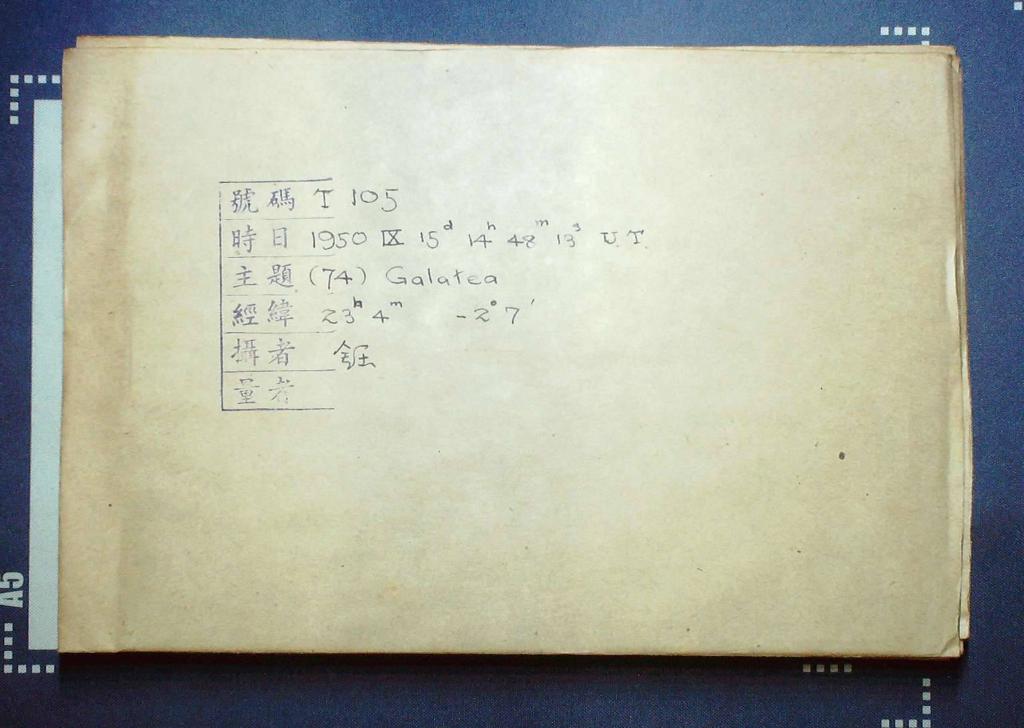 號碼 T 105
時日 1950 IX 15ᵈ 14ʰ 48ᵐ 13ˢ U.T.
主題 (74) Galatea
經緯 23ʰ 4ᵐ -2° 7'
攝者
量者
A5